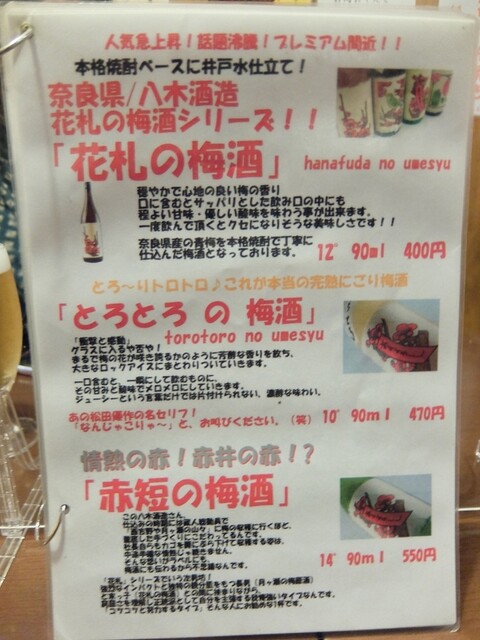 人気急上昇！話題沸騰！プレミアム間近！！
本格焼酎ベースに井戸水仕立て！
奈良県/八木酒造
花札の梅酒シリーズ！！
「花札の梅酒」 hanafuda no umesyu
穏やかで心地の良い梅の香り
口に含むとサッパリとした飲み口の中にも
程よい甘味・優しい酸味を味わう事が出来ます。
一度飲んで頂くとクセになりそうな美味しさです！！
奈良県産の青梅を本格焼酎で丁寧に
仕込んだ梅酒となっております。 12° 90ml 400円
とろ～りトロトロ♪これが本当の完熟にごり梅酒
「とろとろ の 梅酒」
torotoro no umesyu
「衝撃と感動」
グラスに入るや否や！
まるで梅の花が咲き誇るかのように芳醇な香りを放ち、
大きなロックアイスにまとわりついていきます。
一口含むと、一瞬にして飲むものに、
その甘みと酸味でメロメロにしていきます。
ジューシーという言葉だけでは片付けられない、濃醇な味わい。
あの松田優作の名セリフ！
「なんじゃこりゃ～」と、お叫びください。（笑） 10° 90ml 470円
情熱の赤！赤井の赤！？
「赤短の梅酒」
この八木酒造さん、
14° 90ml 550円
「花札」シリーズでいう次男坊！
「コツコツと努力するタイプ」そんな人にお勧めな1杯です。